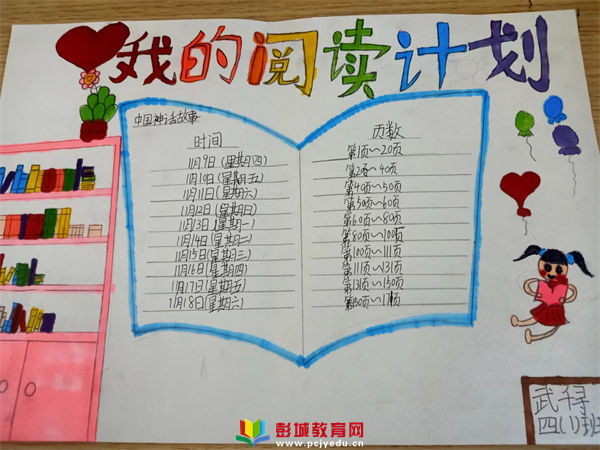 我的阅读计划
中国神话故事
时间
11月9日(星期四)
11月10日(星期五)
11月11日(星期六)
11月12日(星期日)
11月13日(星期一)
11月14日(星期二)
11月15日(星期三)
11月16日(星期四)
11月17日(星期五)
11月18日(星期六)
页数
第1页~20页
第2页~40页
第40页~50页
第50页~60页
第60页~80页
第80页~100页
第100页~111页
第111页~131页
第131页~150页
第150页~171页
武
四(1)班
彭城教育网
www.pcjyedu.cn